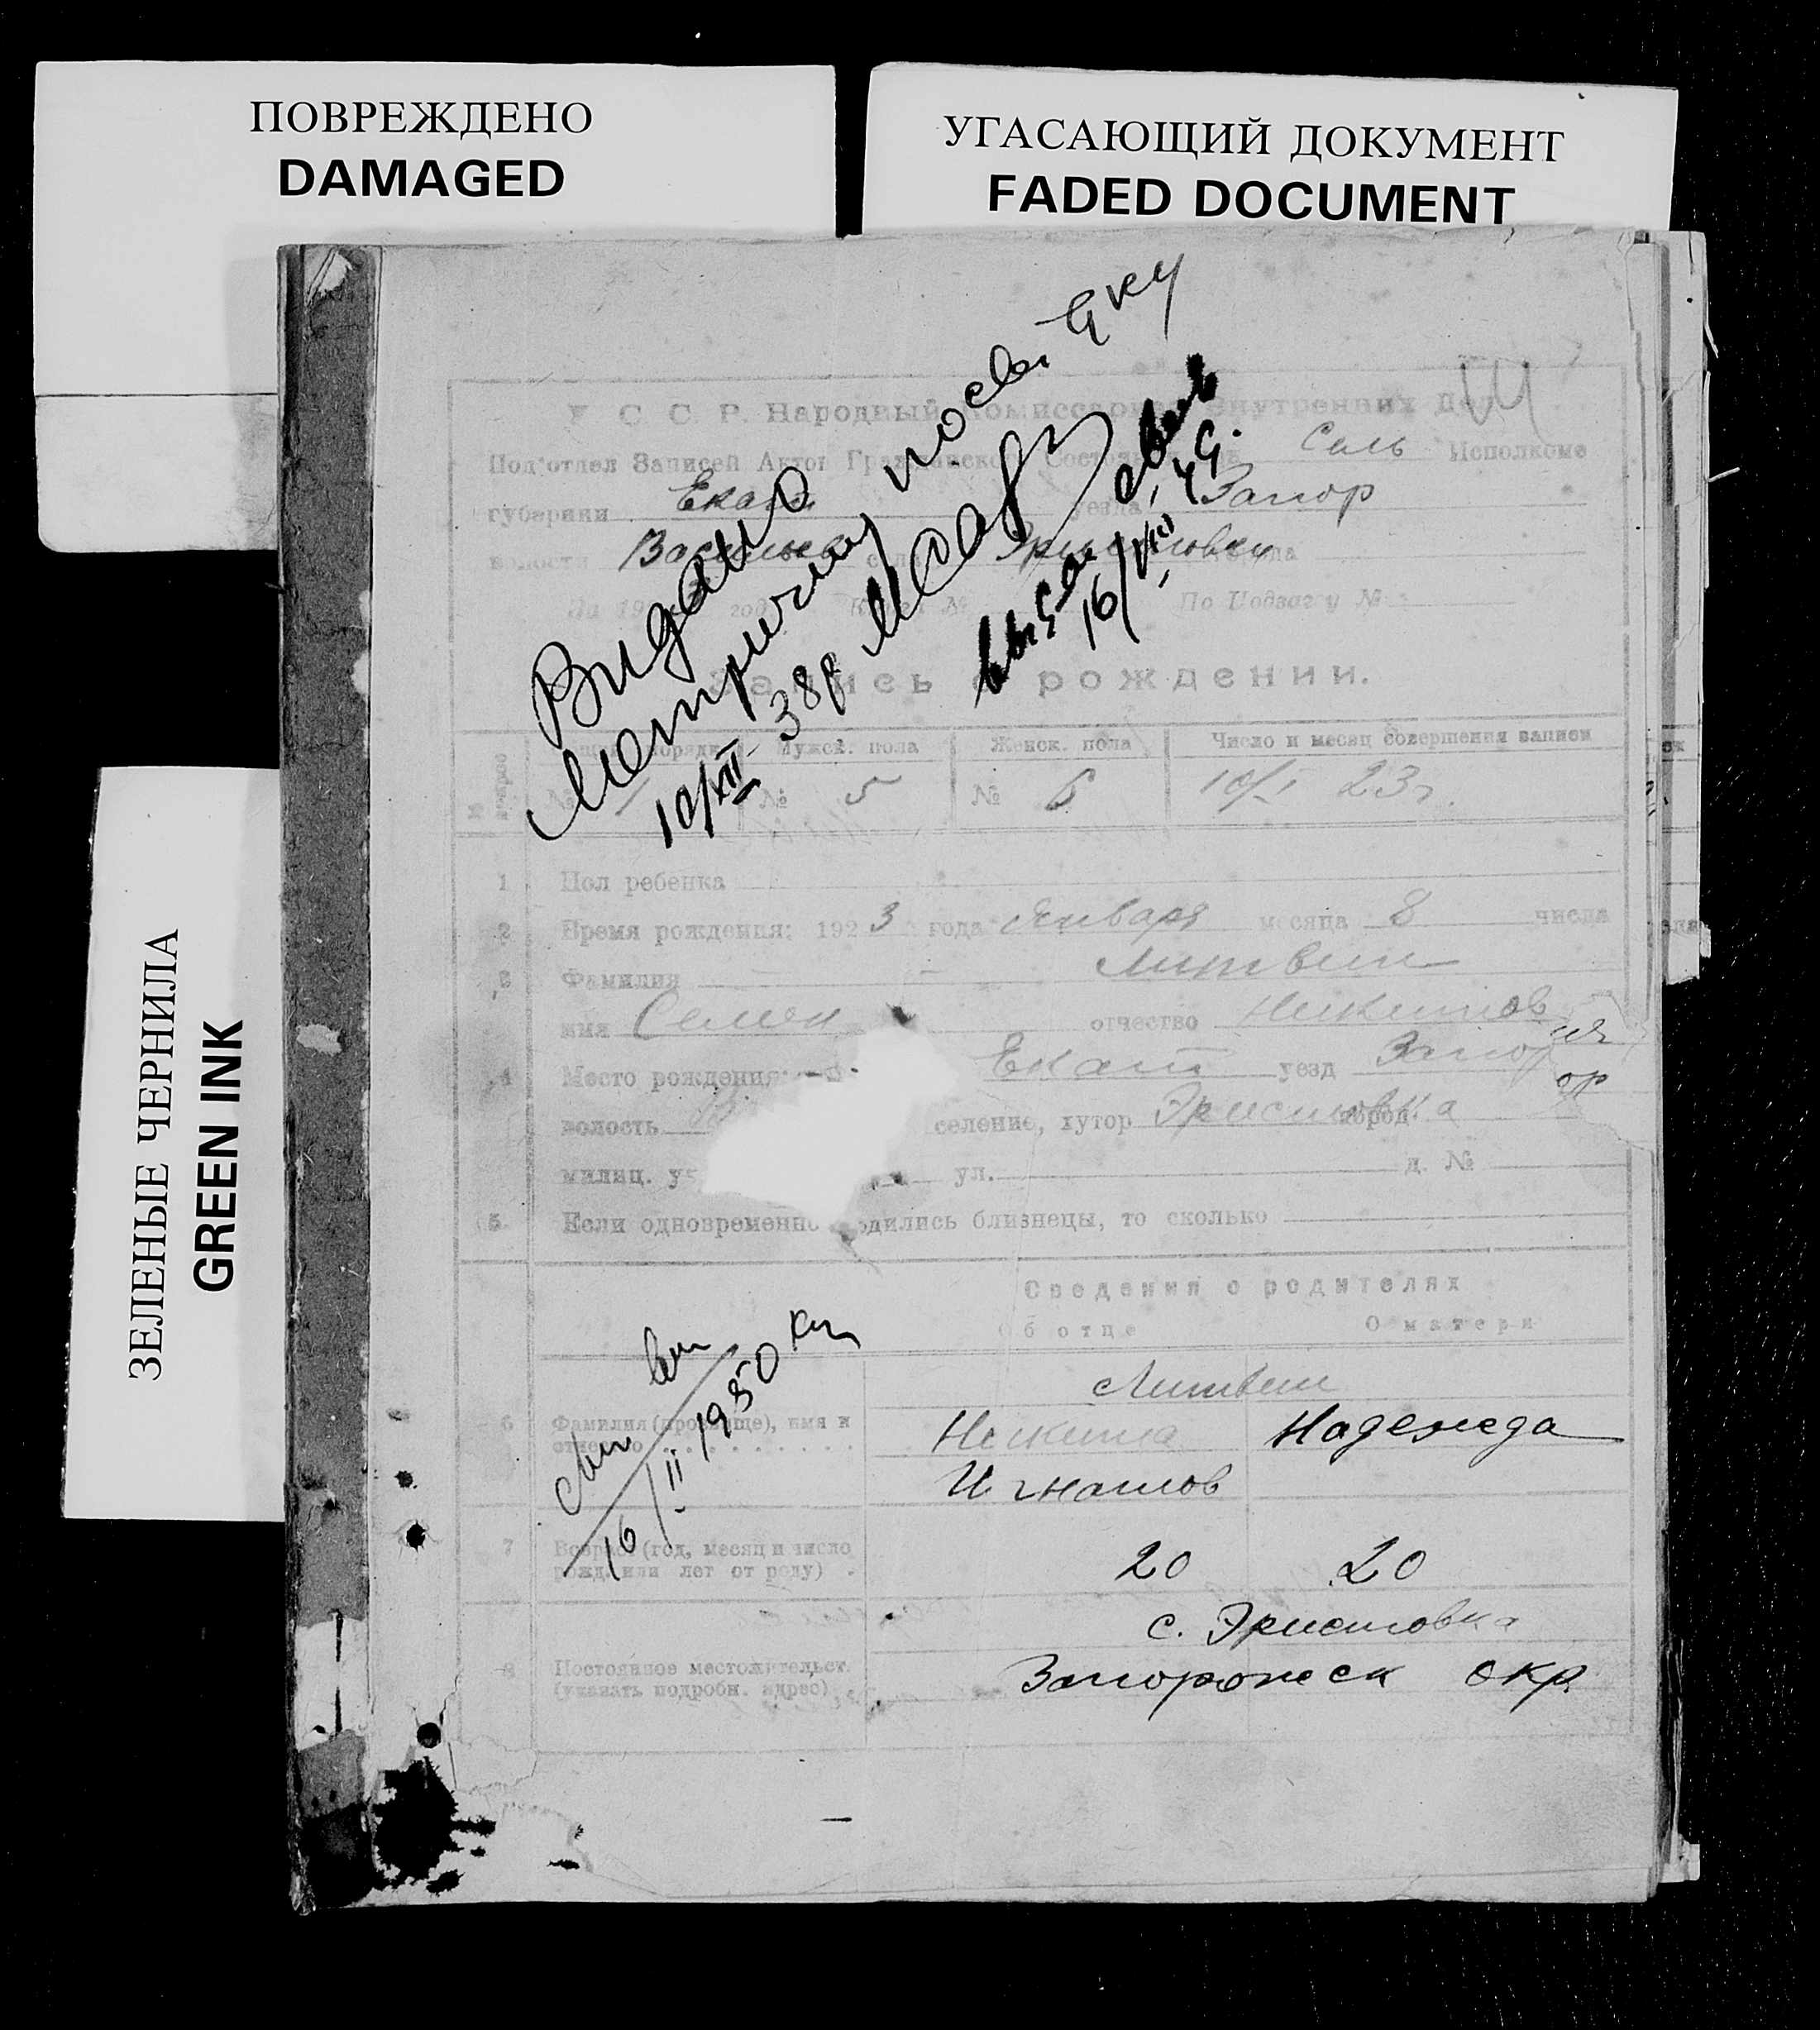 ПОВРЕЖДЕНО
DAMAGED
УГАСАЮЩИЙ ДОКУМЕНТ
FADED DOCUMENT
ЗЕЛЕНЫЕ ЧЕРНИЛА
GREEN INK
У. С. С. Р. Народный Комиссариат Внутренних Дел
Подотдел Записей Актов Гражданского Состояния Сель Исполкоме
губернии Екат уезда Запор
волости села Эристовки
На 19 год По Подзагу №
Запись о рождении.
Видано
Метричну
10/XII 38р
16/VIII 49.
Мужск. пола Женск. пола Число и месяц совершения записи
№ 5 № 6 10/I 23г.
1 Пол ребенка
2 Время рождения: 1923 года Января месяца 8 числа
3 Фамилия Литвин
имя Семен отчество Никитов
4 Место рождения: Екат уезд Запор
ор
волость селение, хутор Эристовка город
милиц. ул. д. №
5. Если одновременно родились близнецы, то сколько
Сведения о родителях
Об отце О матери
Литвин
6 Фамилия (прозвище), имя и
отчество
Никита Надежда
Игнатов
16/II 1950
7 Возраст (год, месяц и число
рожд. или лет от роду)
20 20
8 Постоянное местожительст.
(указать подробн. адрес)
с. Эристовка
Запорожск окр